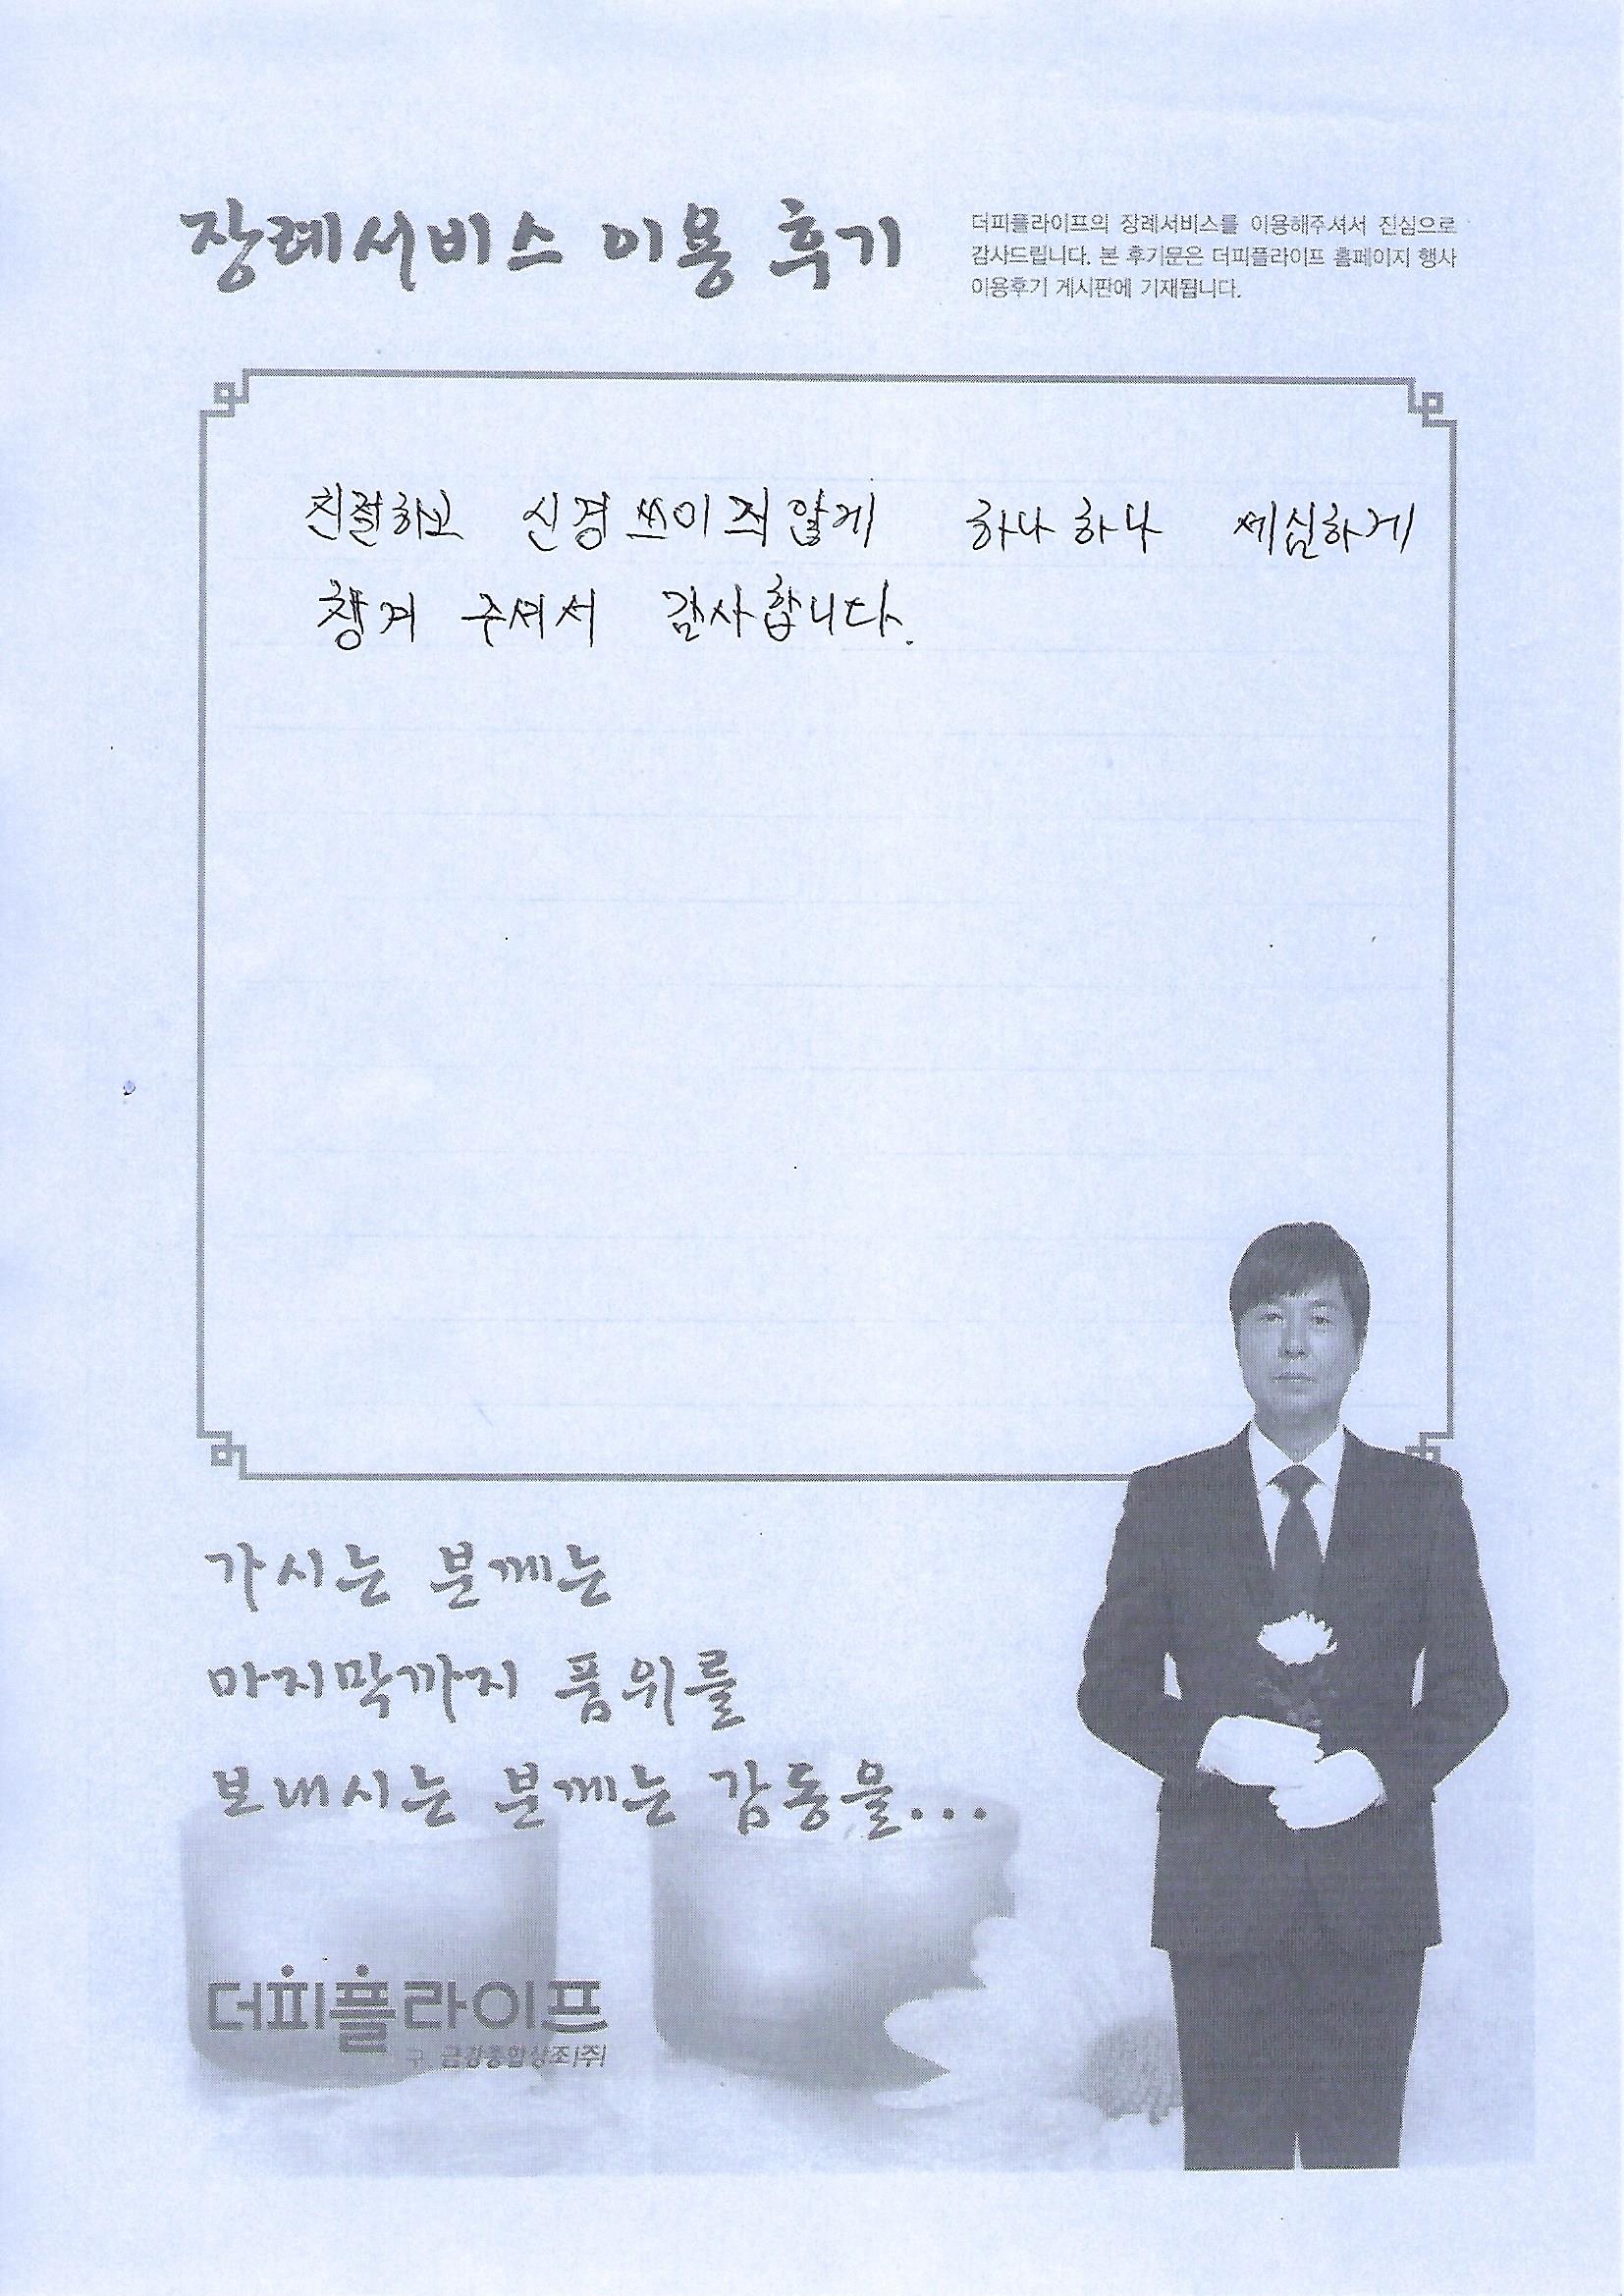 장례서비스 이용 후기
더피플라이프의 장례서비스를 이용해주셔서 진심으로
감사드립니다. 본 후기문은 더피플라이프 홈페이지 행사
이용후기 게시판에 기재됩니다.
친절하고 신경쓰이지않게 하나하나 세심하게
챙겨 주셔서 감사합니다.
가시는 분께는
마지막까지 품위를
보내시는 분께는 감동을...
더피플라이프
구. 금강종합상조(주)